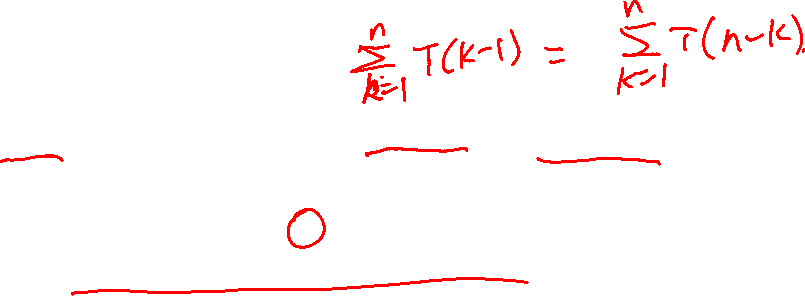 \sum_{k=1}^{n} T(k-1) = \sum_{k=1}^{n} T(n-k).
O